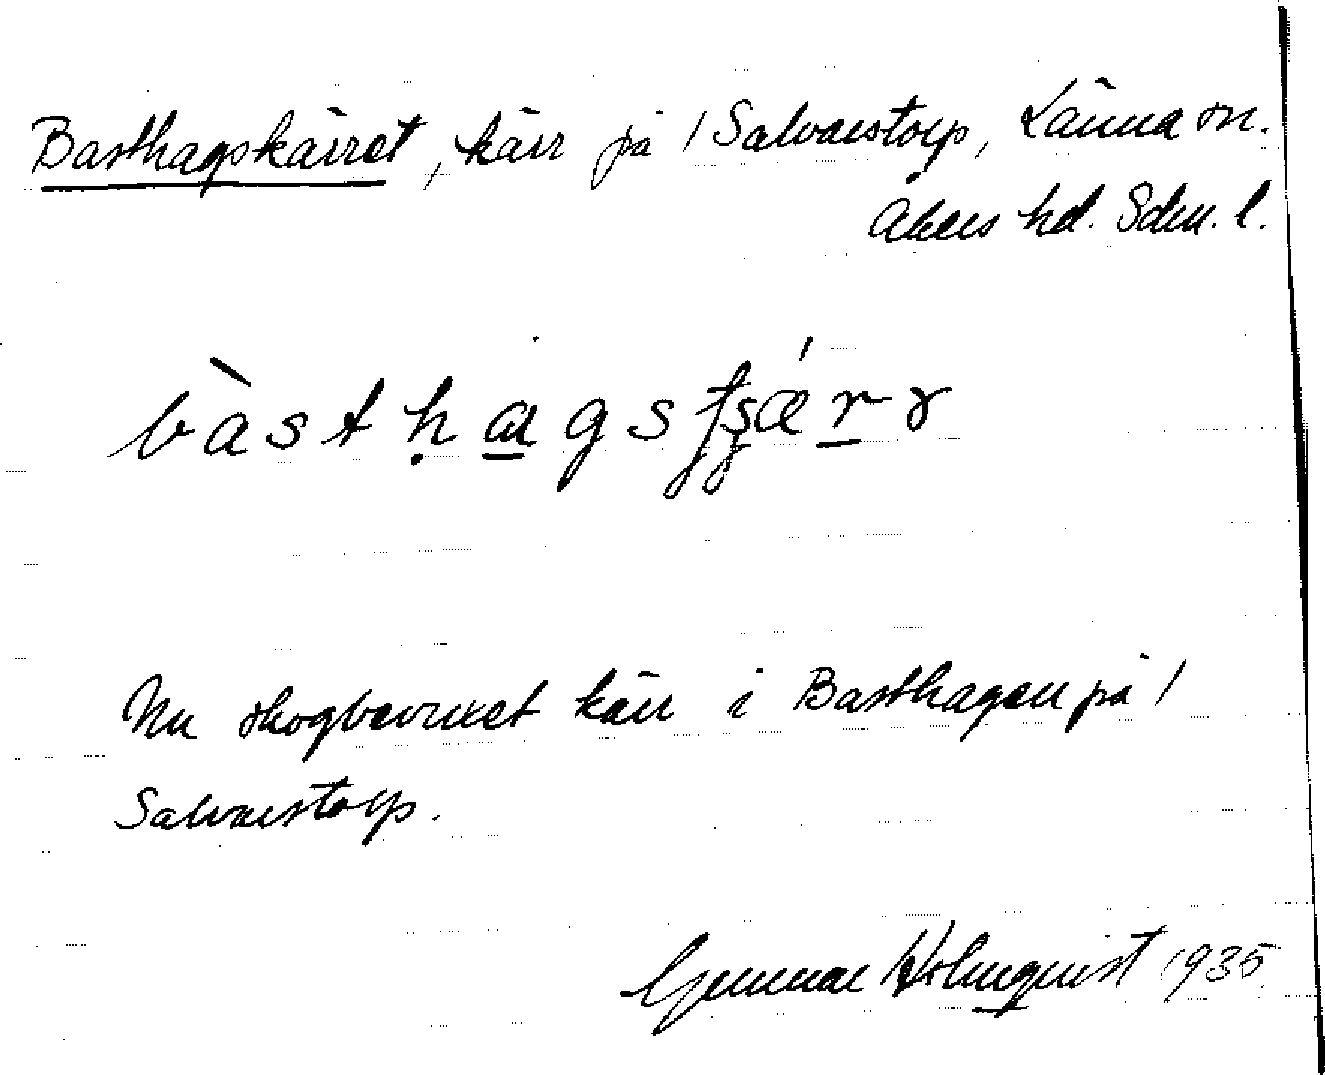 Basthagskärret, kärr på /Salvarstorp, Länna sn.
Åkers hd. Söm. l.
bàsthagsʈʂǽrr
Nu skogbevuxet kärr i Basthagen på /
Salvarstorp.
Gunnar Holmquist 1935